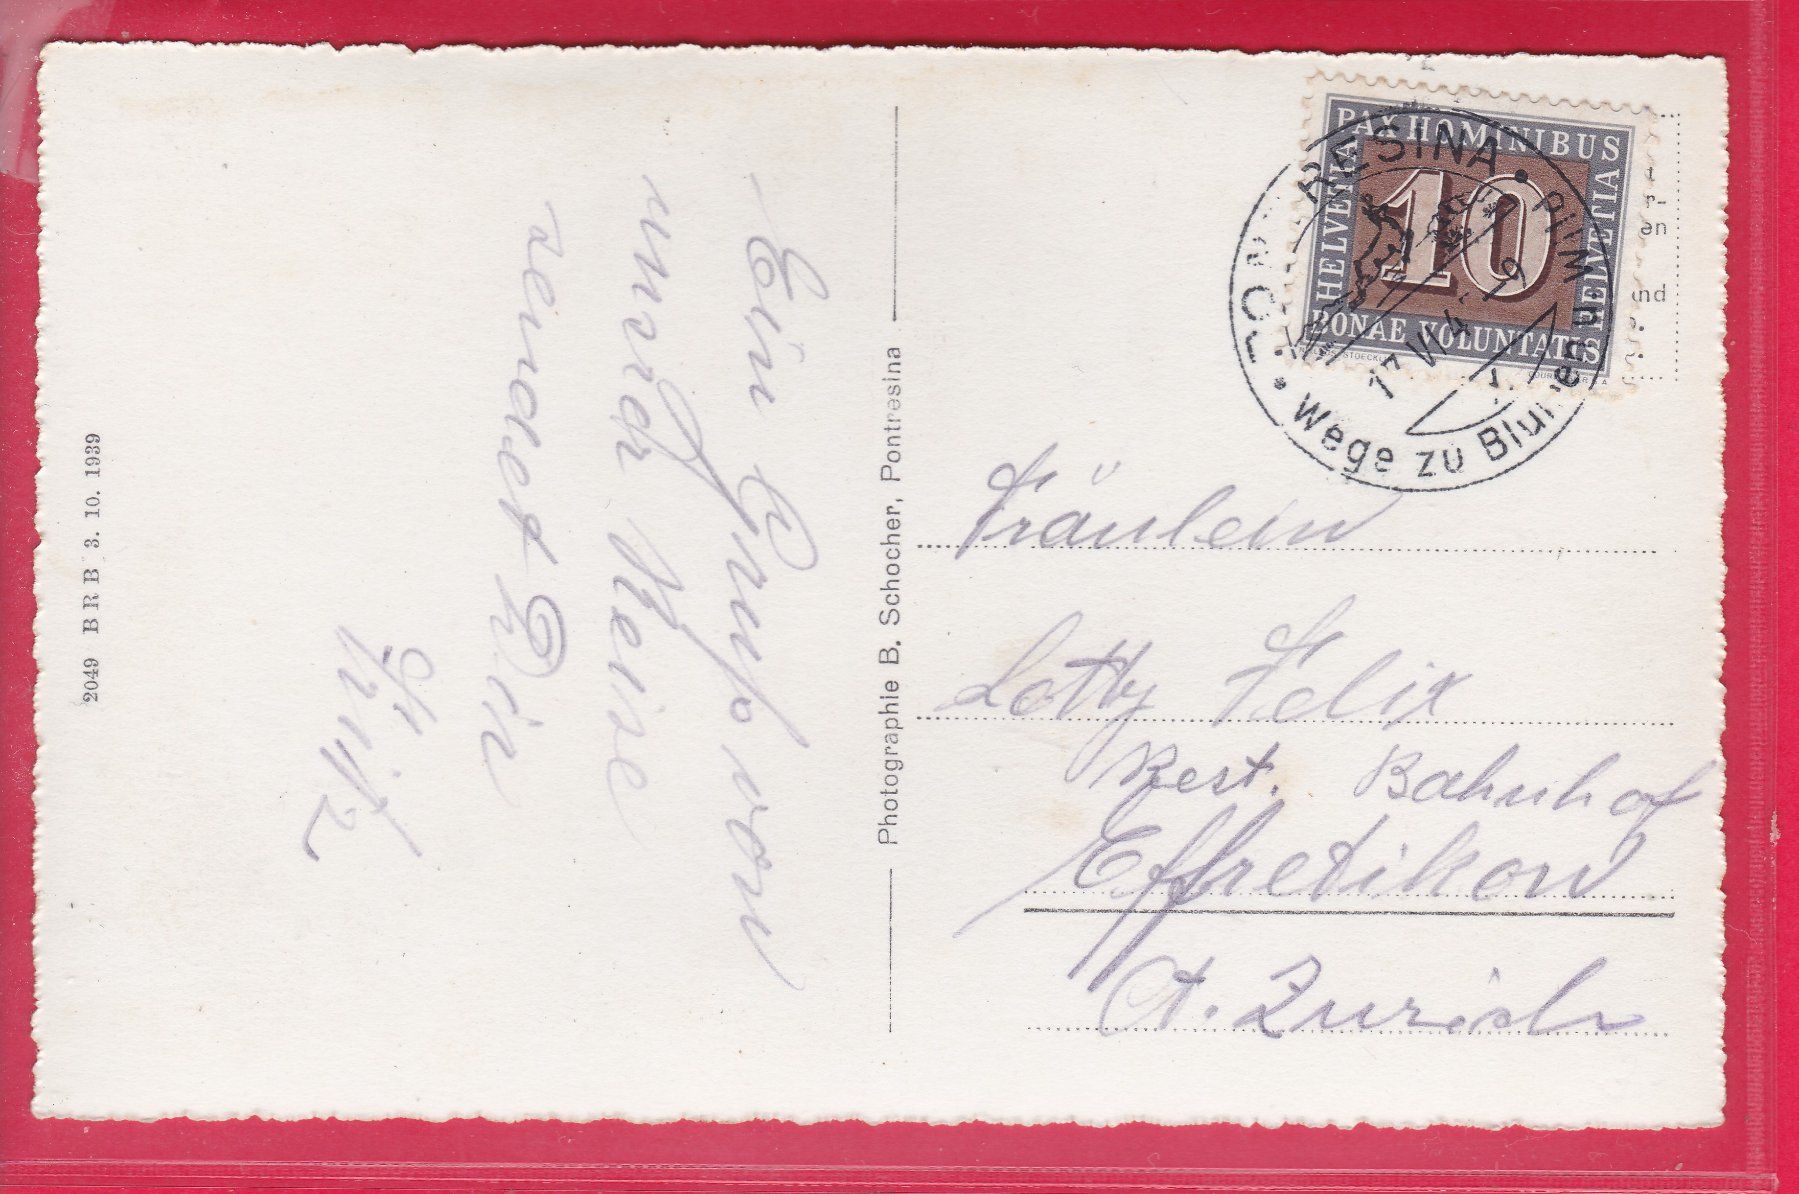 2049 BRB 3. 10. 1939
Ein Gruss von
unsrer Reise
sendet Dir
Fritz
Photographie B. Schocher, Pontresina
PAX HOMINIBUS
HELVETIA
HELVETIA
10
BONAE VOLUNTATIS
PONTRESINA
17 VI 4
Wege zu Blumen und Wild
en
und
Fräulein
Lotty Felix
Rest. Bahnhof
Effretikon
Ct. Zürich